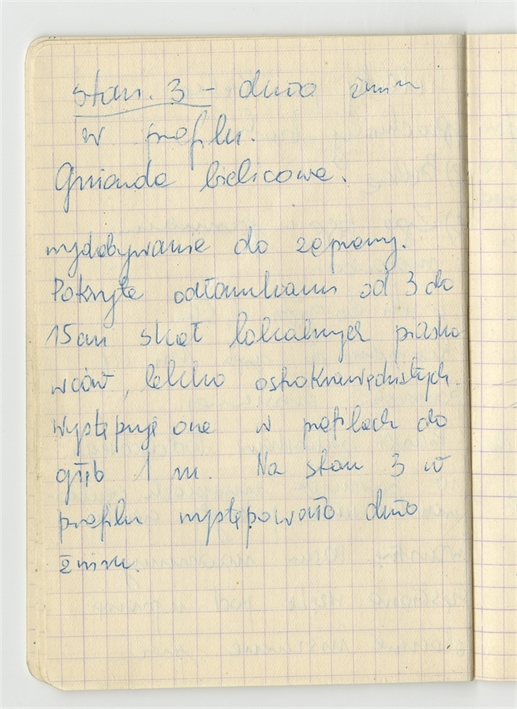 stan. 3 – dużo żwiru
w profilu.
Gniazda bielicowe.
wydobywanie do zaprawy.
Pokryte odłamkami od 3 do
15 cm skał lokalnych piasko
wców, lekko ostrokrawędzistych.
występują one w profilach do
głęb 1 m. Na stan 3 w
profilu występowało dużo
żwiru.